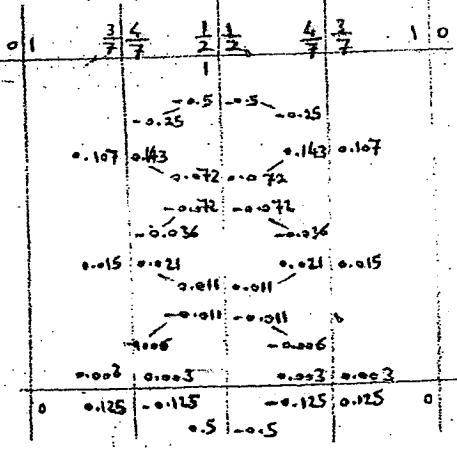 0 1 3/7 4/7 1/2 1/2 4/7 3/7 1 0
1
-0.5 -0.5
-0.25 -0.25
0.107 0.143 0.143 0.107
0.072 0.072
-0.072 -0.072
-0.036 -0.036
0.015 0.021 0.021 0.015
0.011 0.011
-0.011 -0.011
-0.006 -0.006
0.003 0.003 0.003
0 0.125 -0.125 -0.125 0.125 0
0.5 -0.5